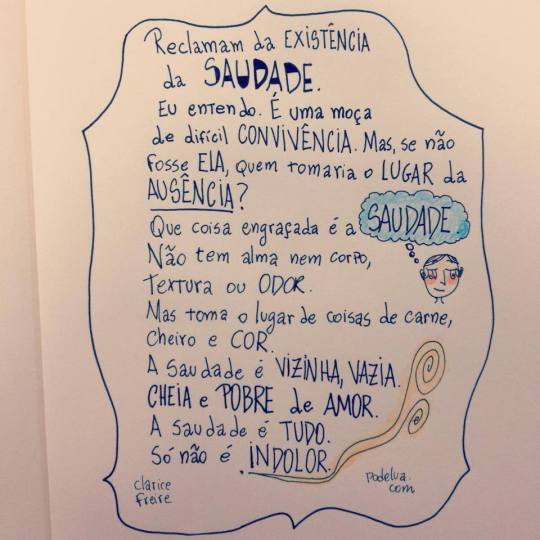 Reclamam da EXISTÊNCIA
da SAUDADE.
Eu entendo. É uma moça
de difícil CONVIVÊNCIA. Mas, se não
fosse ELA, quem tomaria o LUGAR da
AUSÊNCIA?
Que coisa engraçada é a SAUDADE.
Não tem alma nem corpo,
textura ou ODOR.
Mas toma o lugar de coisas de carne,
cheiro e COR.
A saudade é VIZINHA, VAZIA.
CHEIA e POBRE de AMOR.
A saudade é TUDO.
Só não é INDOLOR.
clarice
freire
podelua.
com